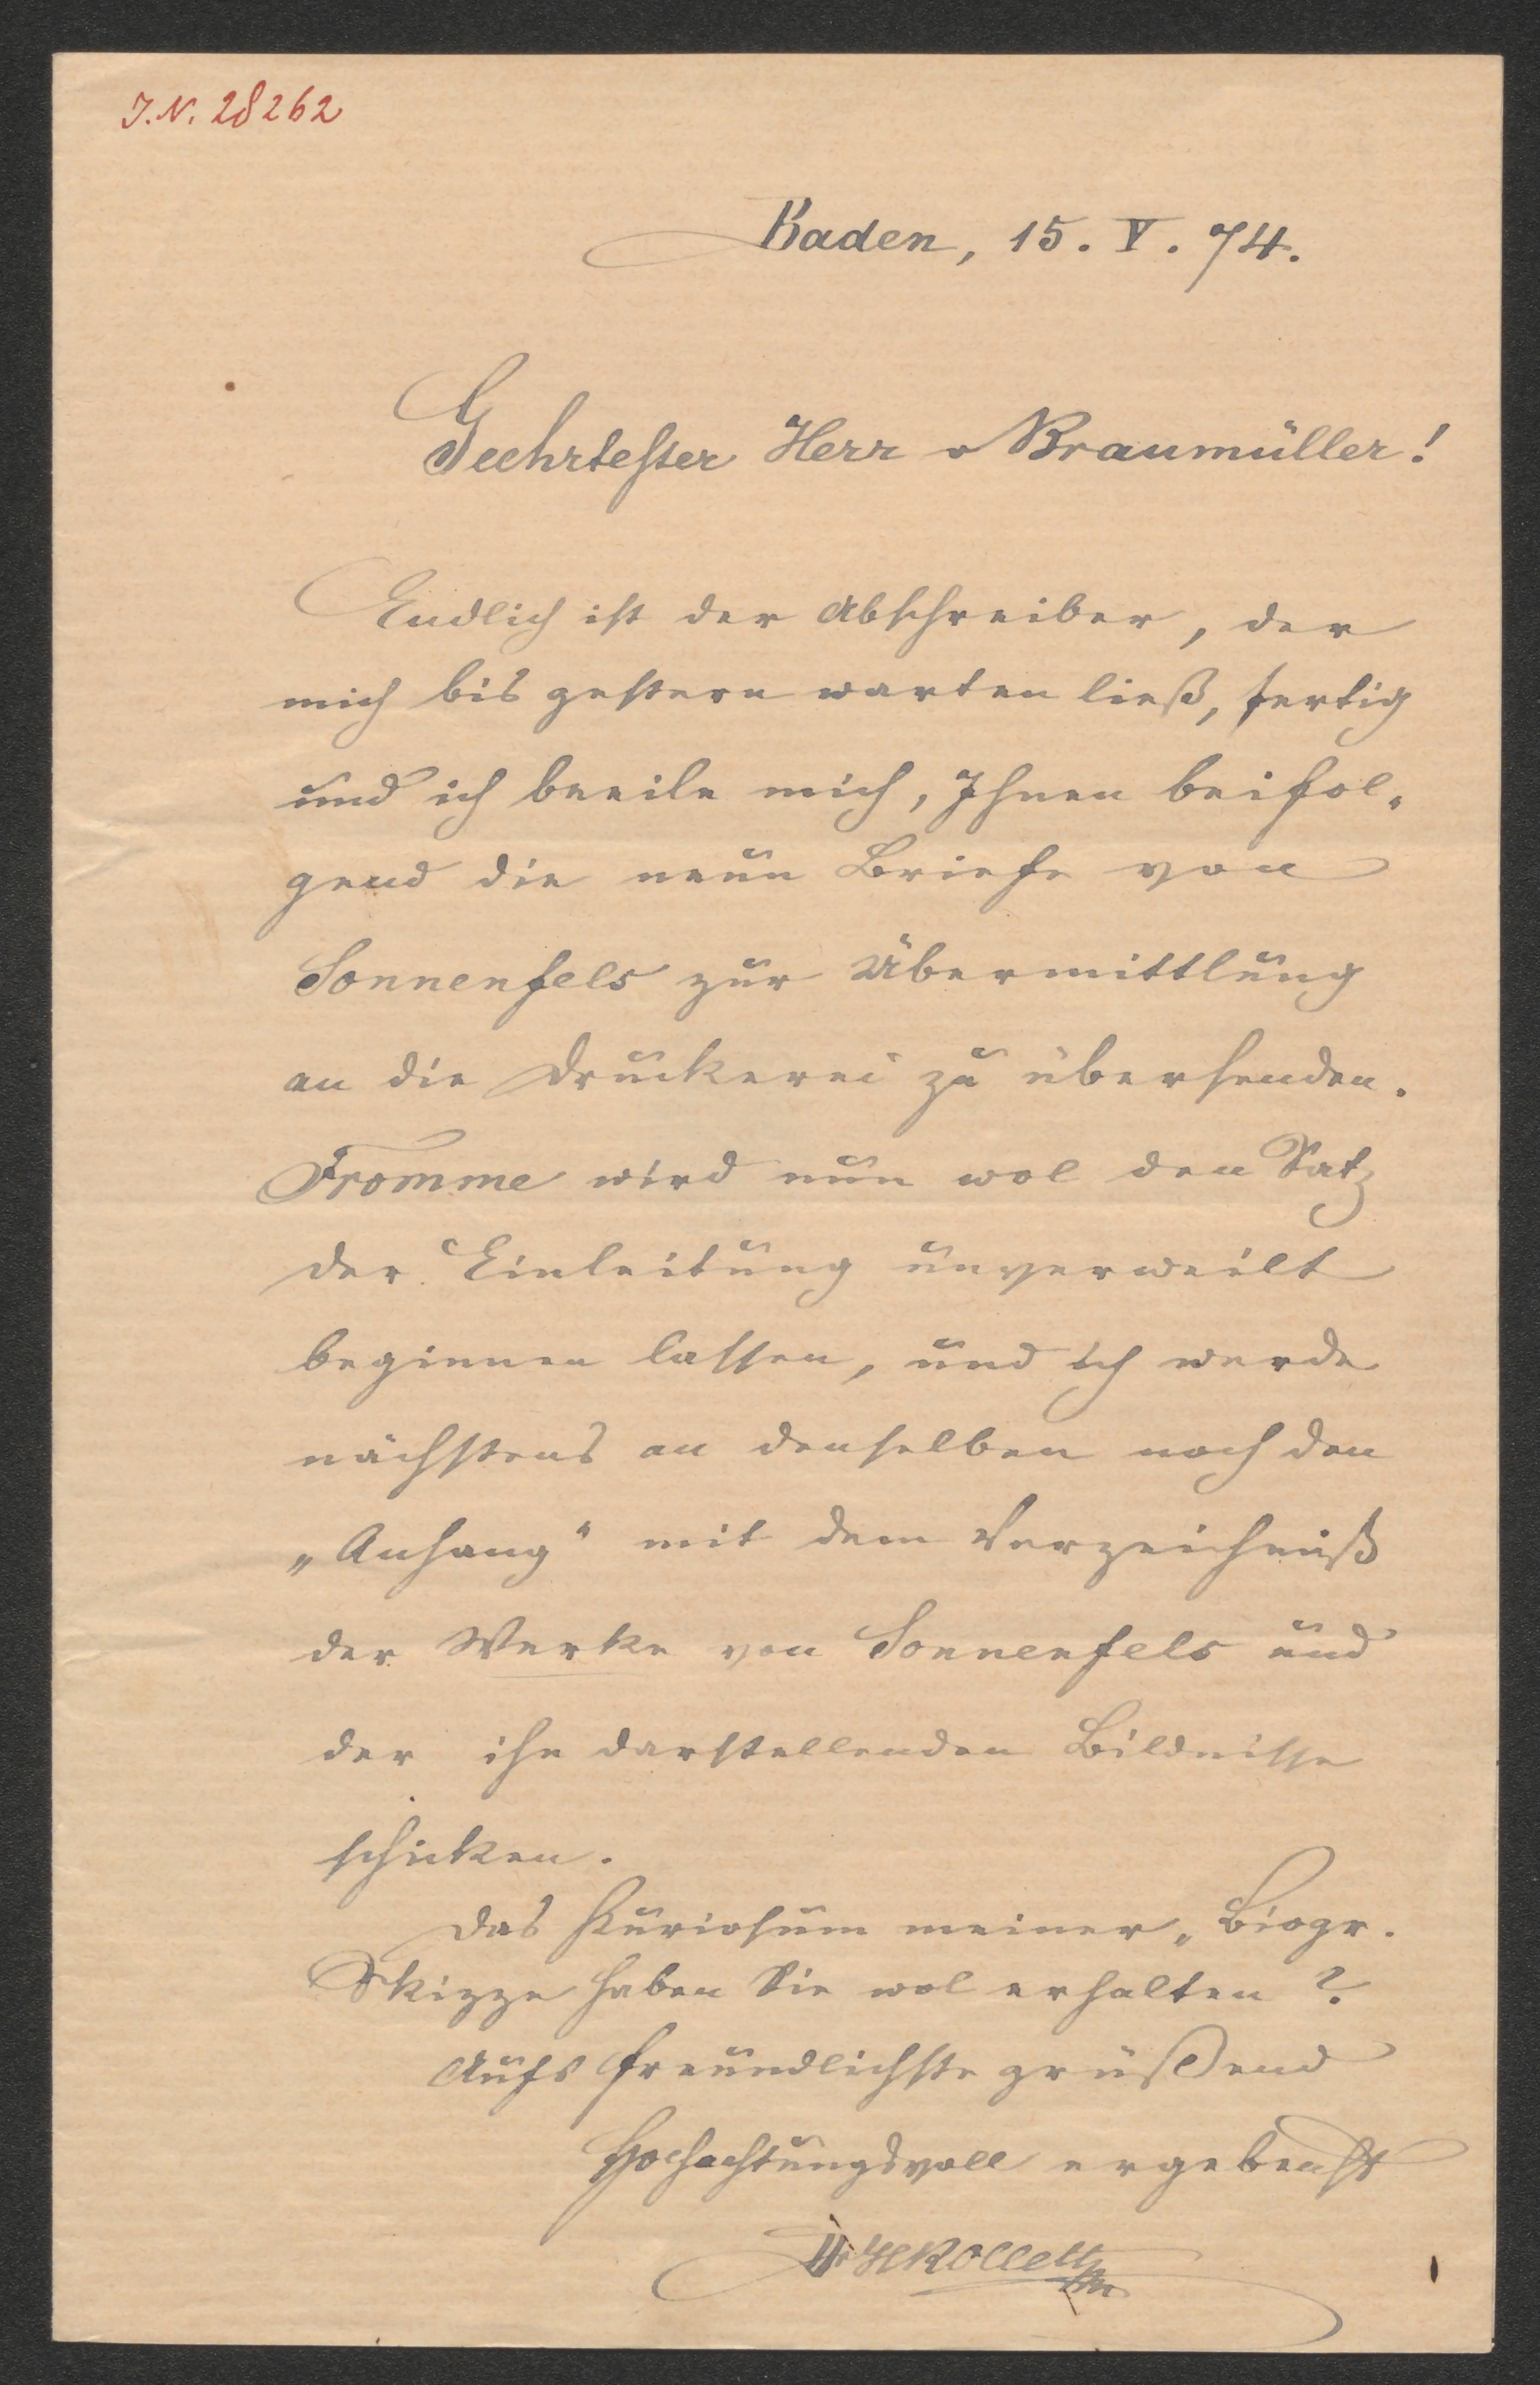 J.N. 28262
Baden, 15. V. 74.
Geehrtester Herr v Braumüller!
Endlich ist der Abschreiber, der
mich bis gestern warten ließ, fertig
und ich beeile mich, Ihnen beifol„
gend die neun Briefe von
Sonnenfels zur Übermittlung
an die Druckerei zu übersenden.
Fromme wird nun wol den Satz
der Einleitung unverweilt
beginnen lassen, und ich werde
nächstens an denselben noch den
„Anhang“ mit dem Verzeichniß
der Werke von Sonnenfels und
der ihn darstellenden Bildnisse
schicken.
Das Kuriosum meiner „Biogr.
Skizze haben Sie wol erhalten?
Aufs freundlichste grüßend
Hochachtungsvoll ergebenst
Dr HRollett